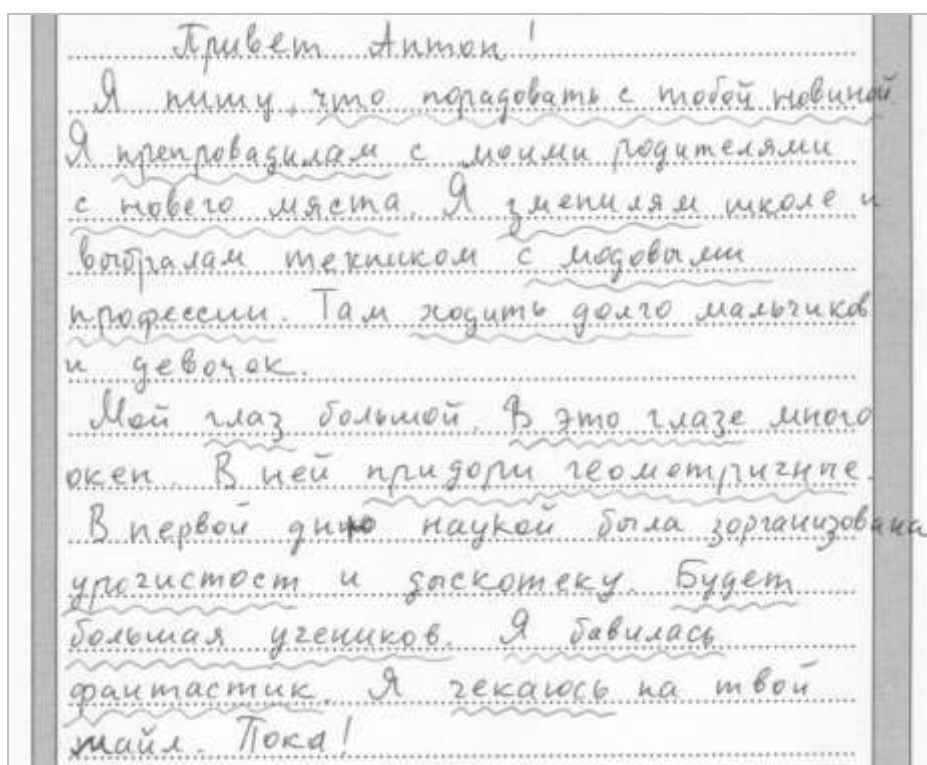 Привет Антон!
Я пишу, что порадовать с тобой новиной
Я препровадилам с моими родителями
с новего мяста. Я зменилям школе и
выбралам техником с модовыми
профессии. Там ходить долго мальчиков
и девочок.
Мой глаз большой. В это глазе много
окен. В ней придори геометричные.
В первой дню наукой была зорганизована
урочистост и дыскотеку. Будет
большая учеников. Я бавилась
фантастик. Я чекаюсь на твой
майл. Пока!